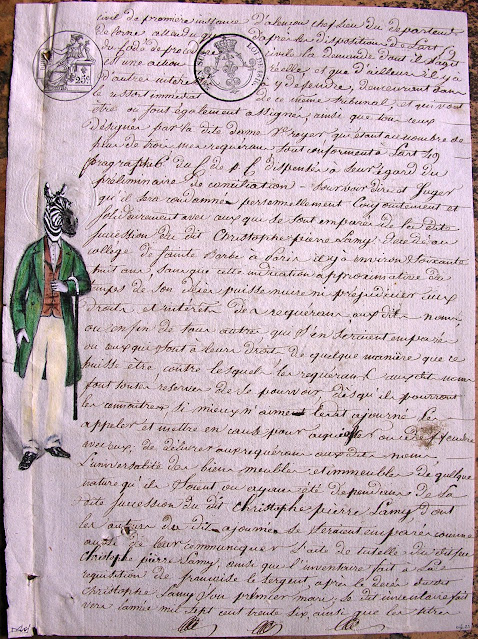 civil de première instance d'alençon chef lieu du departemt
de lorne attendu que d'après les dispositions de l'art 59
du code de procédure civile la demande dont il s'agit
est une action réelle, et que d'ailleurs il y a
d'autre interes y deffendre, demeurant dans
le ressort immédiat de ce même tribunal, et qui vont
être ou sont également assignes, ainsi que tous ceux
désignés par la dite dame Ve royer qui étant au nombre de
plus de trois mes requerans sont conformement a l'art 49
paragraphe du C de p C dispensés a leur égard du
préliminaire de conciliation - pour voir dire et juger
qu'il sera condamné personnellement conjointement et
solidairement avec ceux qui se sont emparés de la dite
succession du dit Christophe pierre Lamy, décédé au
collége de Sainte Barbe a paris il y a environ soixante
huit ans, sans que cette indication approximative du
temps de son décès puisse nuire ni préjudicier aux
droits et intérêts des requerans aux dits noms,
ou enfin de tous autres qui s'en seraient emparé
ou ceux qui sont a leurs droits de quelque manière que ce
puisse être, contre lesquels les requerans aux dits noms
font toute reserves de se pourvoir dès qu'ils pourront
les connaitre si mieux n'aime le dit ajourné les
appeler et mettre en cause pour
veu eux, de délivrer aux requerans aux dits noms
L'universalité des biens meubles et immeubles de quelque
nature qu'ils soient ou ayant été dependans de la
dite succession du dit christophe pierre Lamy dont
les auteurs du dit ajourné se seraient emparés comme
aussi de leur communiquer l'acte de tutelle du dit feu
Christophe pierre Lamy, ainsi que l'inventaire fait a la
requisition de françoise le Sergent, après le decès du dit
christophe Lamy son premier mari, le dit inventaire fait
vers l'année mil sept cent trente six, ainsi que les titres